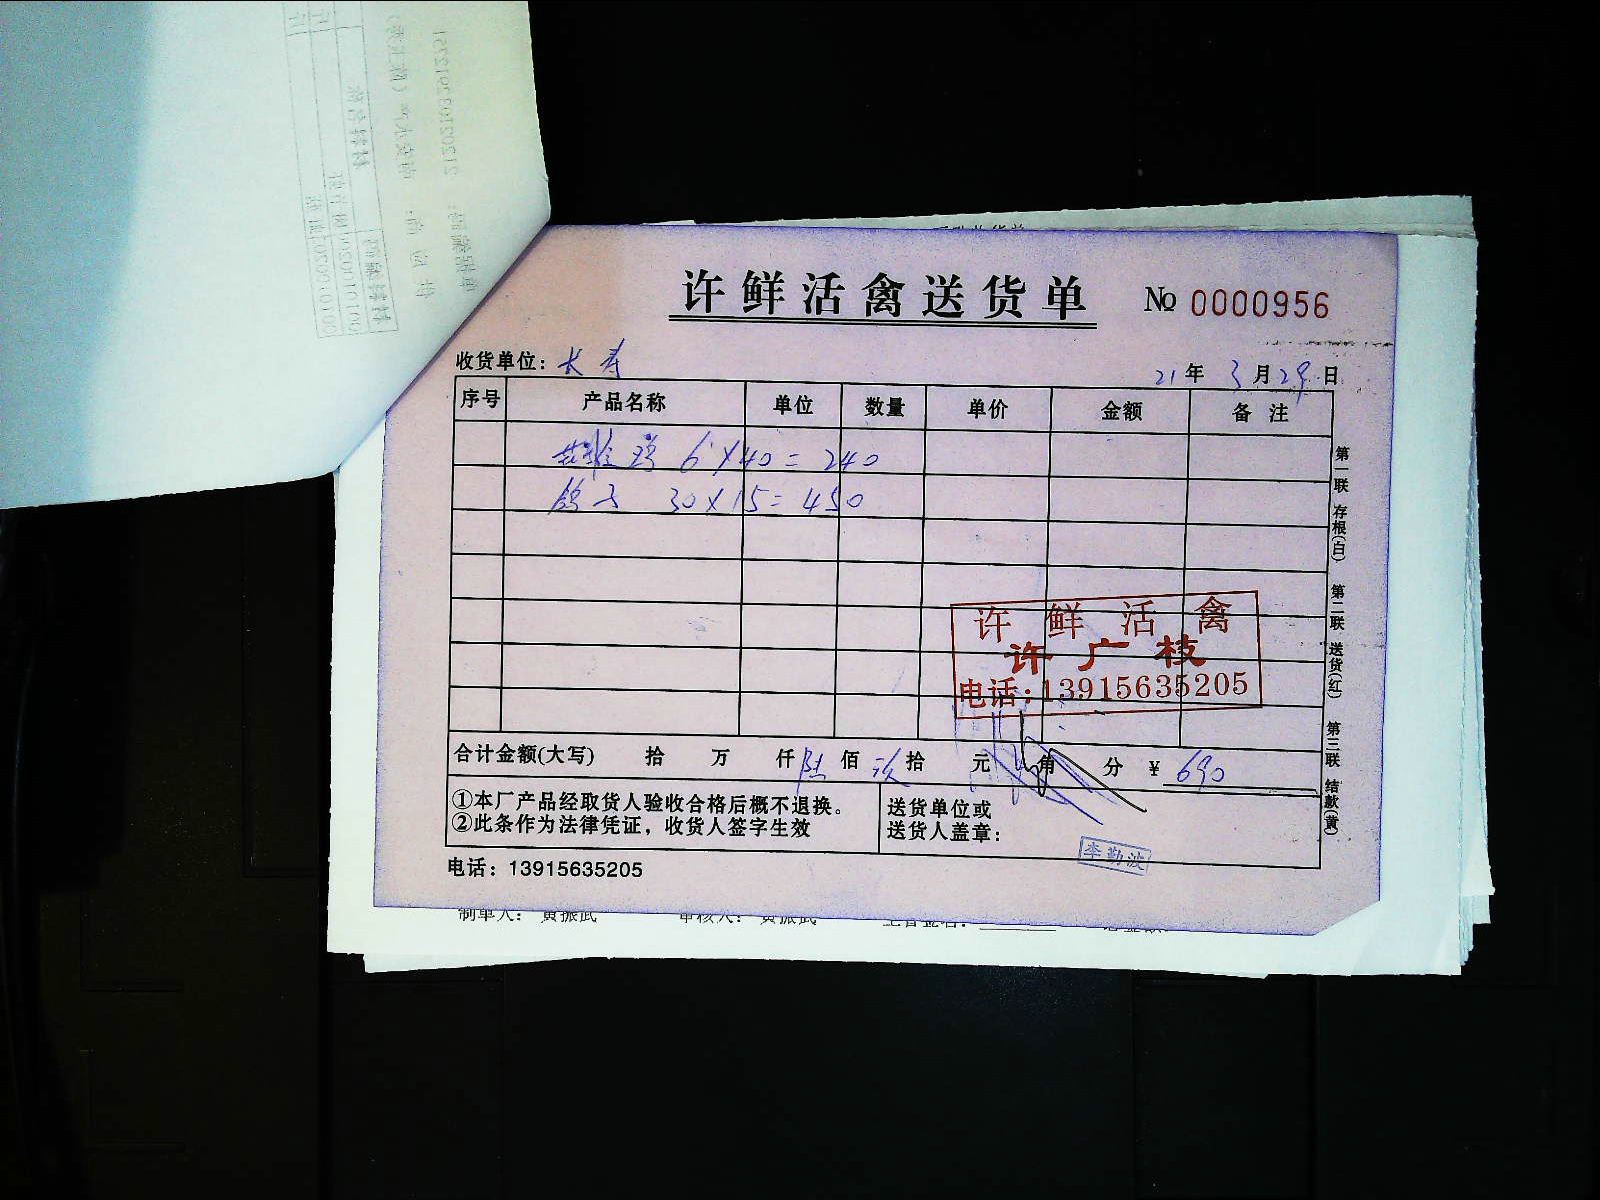 许鲜活禽送货单 № 0000956
收货单位：长寿 21年 3月29日
序号 产品名称 单位 数量 单价 金额 备注
6×40=240
鸽子 30×15=450
许鲜活禽
许广枝
电话：13915635205
合计金额(大写) 拾 万 仟 陆佰 玖拾 元 角 分 ￥690
①本厂产品经取货人验收合格后概不退换。
②此条作为法律凭证，收货人签字生效
送货单位或
送货人盖章：
李勤波
电话：13915635205
第一联 存根(白) 第二联 送货(红) 第三联 结款(黄)
制单人： 黄振武 审核人： 黄振武